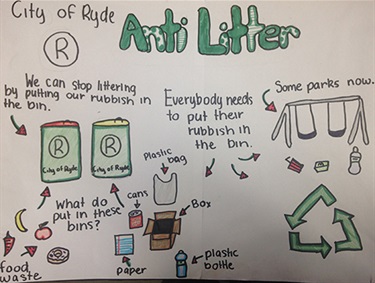 City of Ryde
Anti Litter
R
We can stop littering
by putting our rubbish in
the bin.
Everybody needs
to put their
rubbish in
the bin.
Some parks now.
R
City of Ryde
R
City of Ryde
What do
put in these
bins?
Plastic
bag
cans
Box
food
waste
paper
plastic
bottle